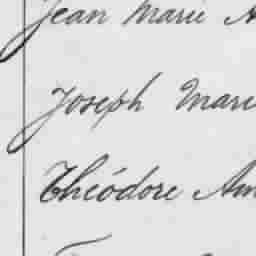 Jean Marie
Joseph Marie
Théodore